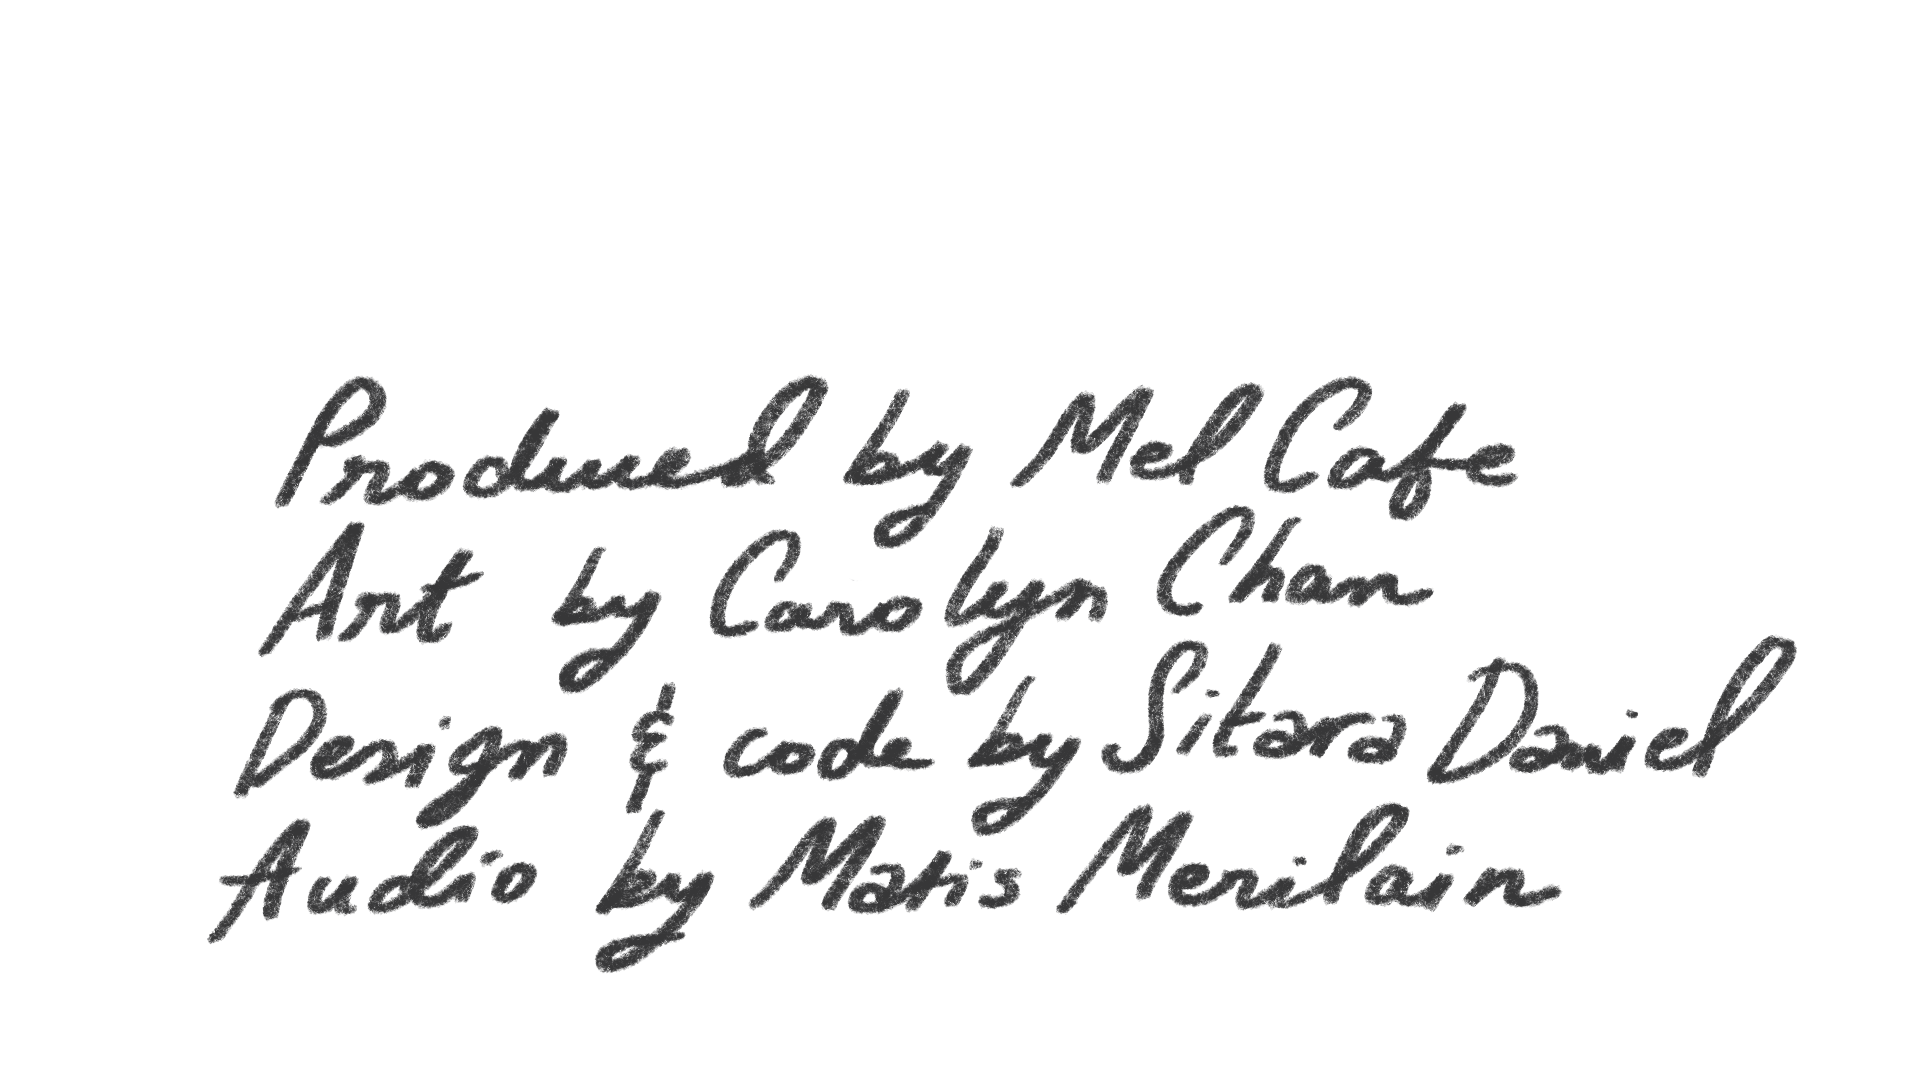 Produced by Mel Cafe
Art by Carolyn Chan
Design & code by Sitara Daniel
Audio by Matis Merilain